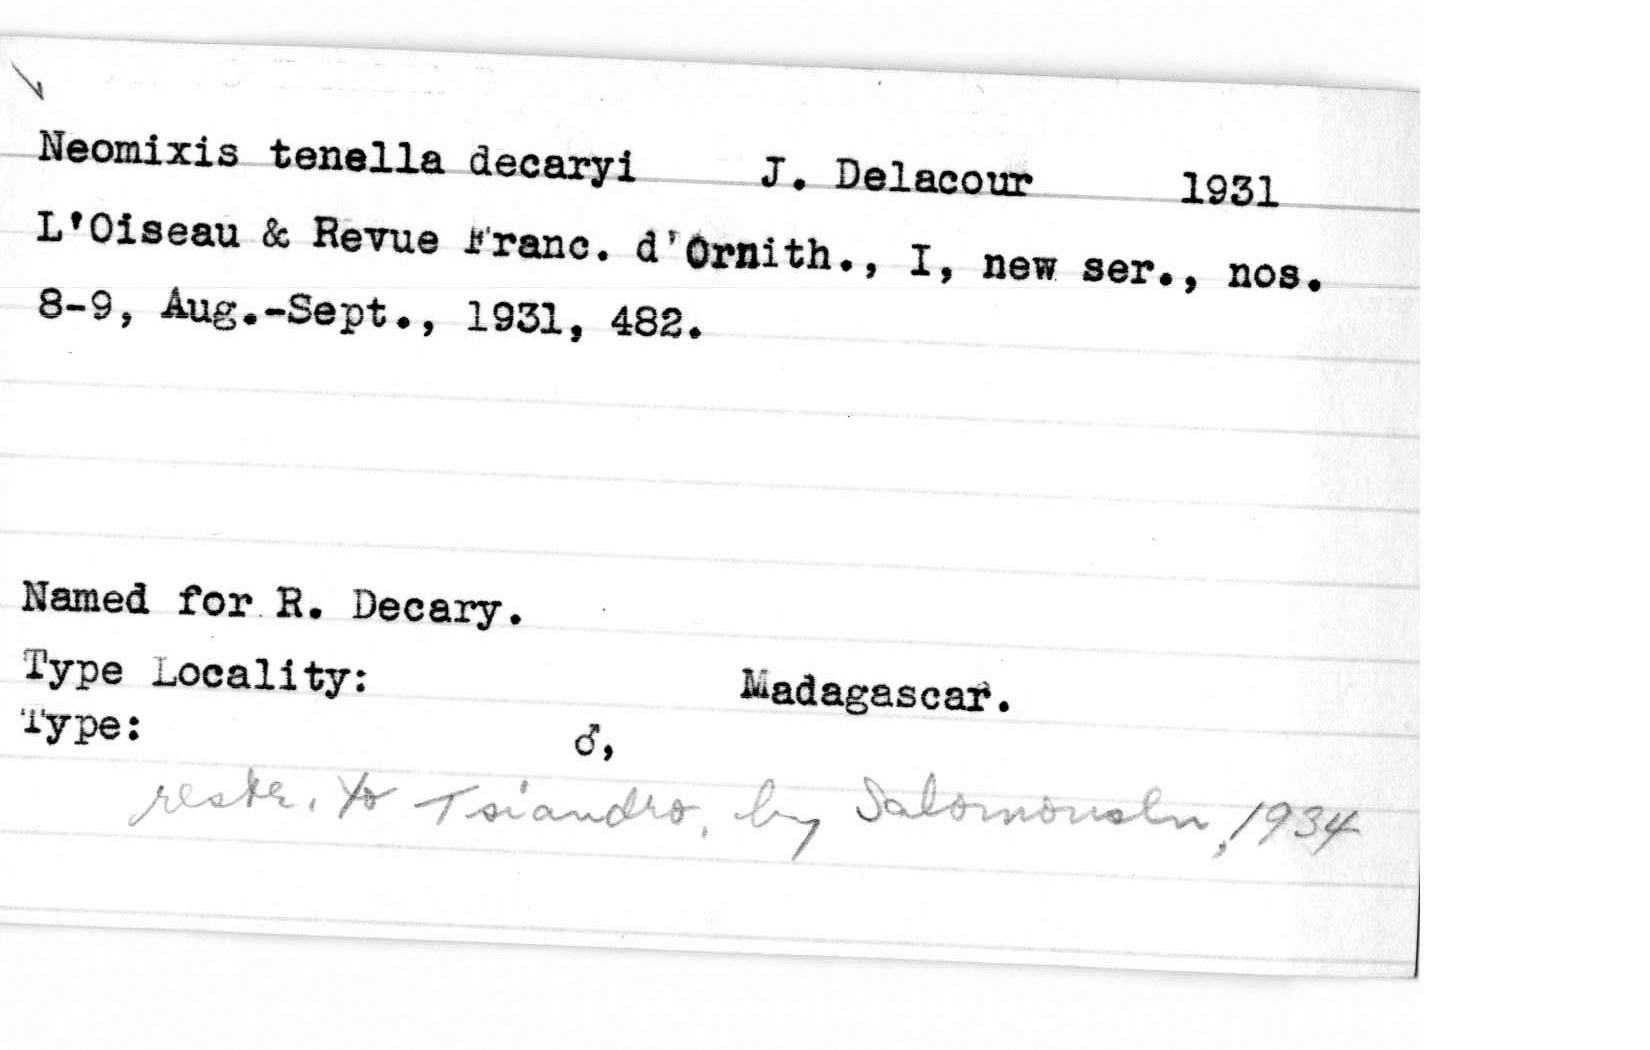 Neomixis tenella decaryi J. Delacour 1931
L'Oiseau & Revue Franc. d'Ornith., I, new ser., nos.
8-9, Aug.-Sept., 1931, 482.
Named for R. Decary.
Type Locality: Madagascar.
Type: ♂,
restr. to Tsiandro, by Salomonsen, 1934